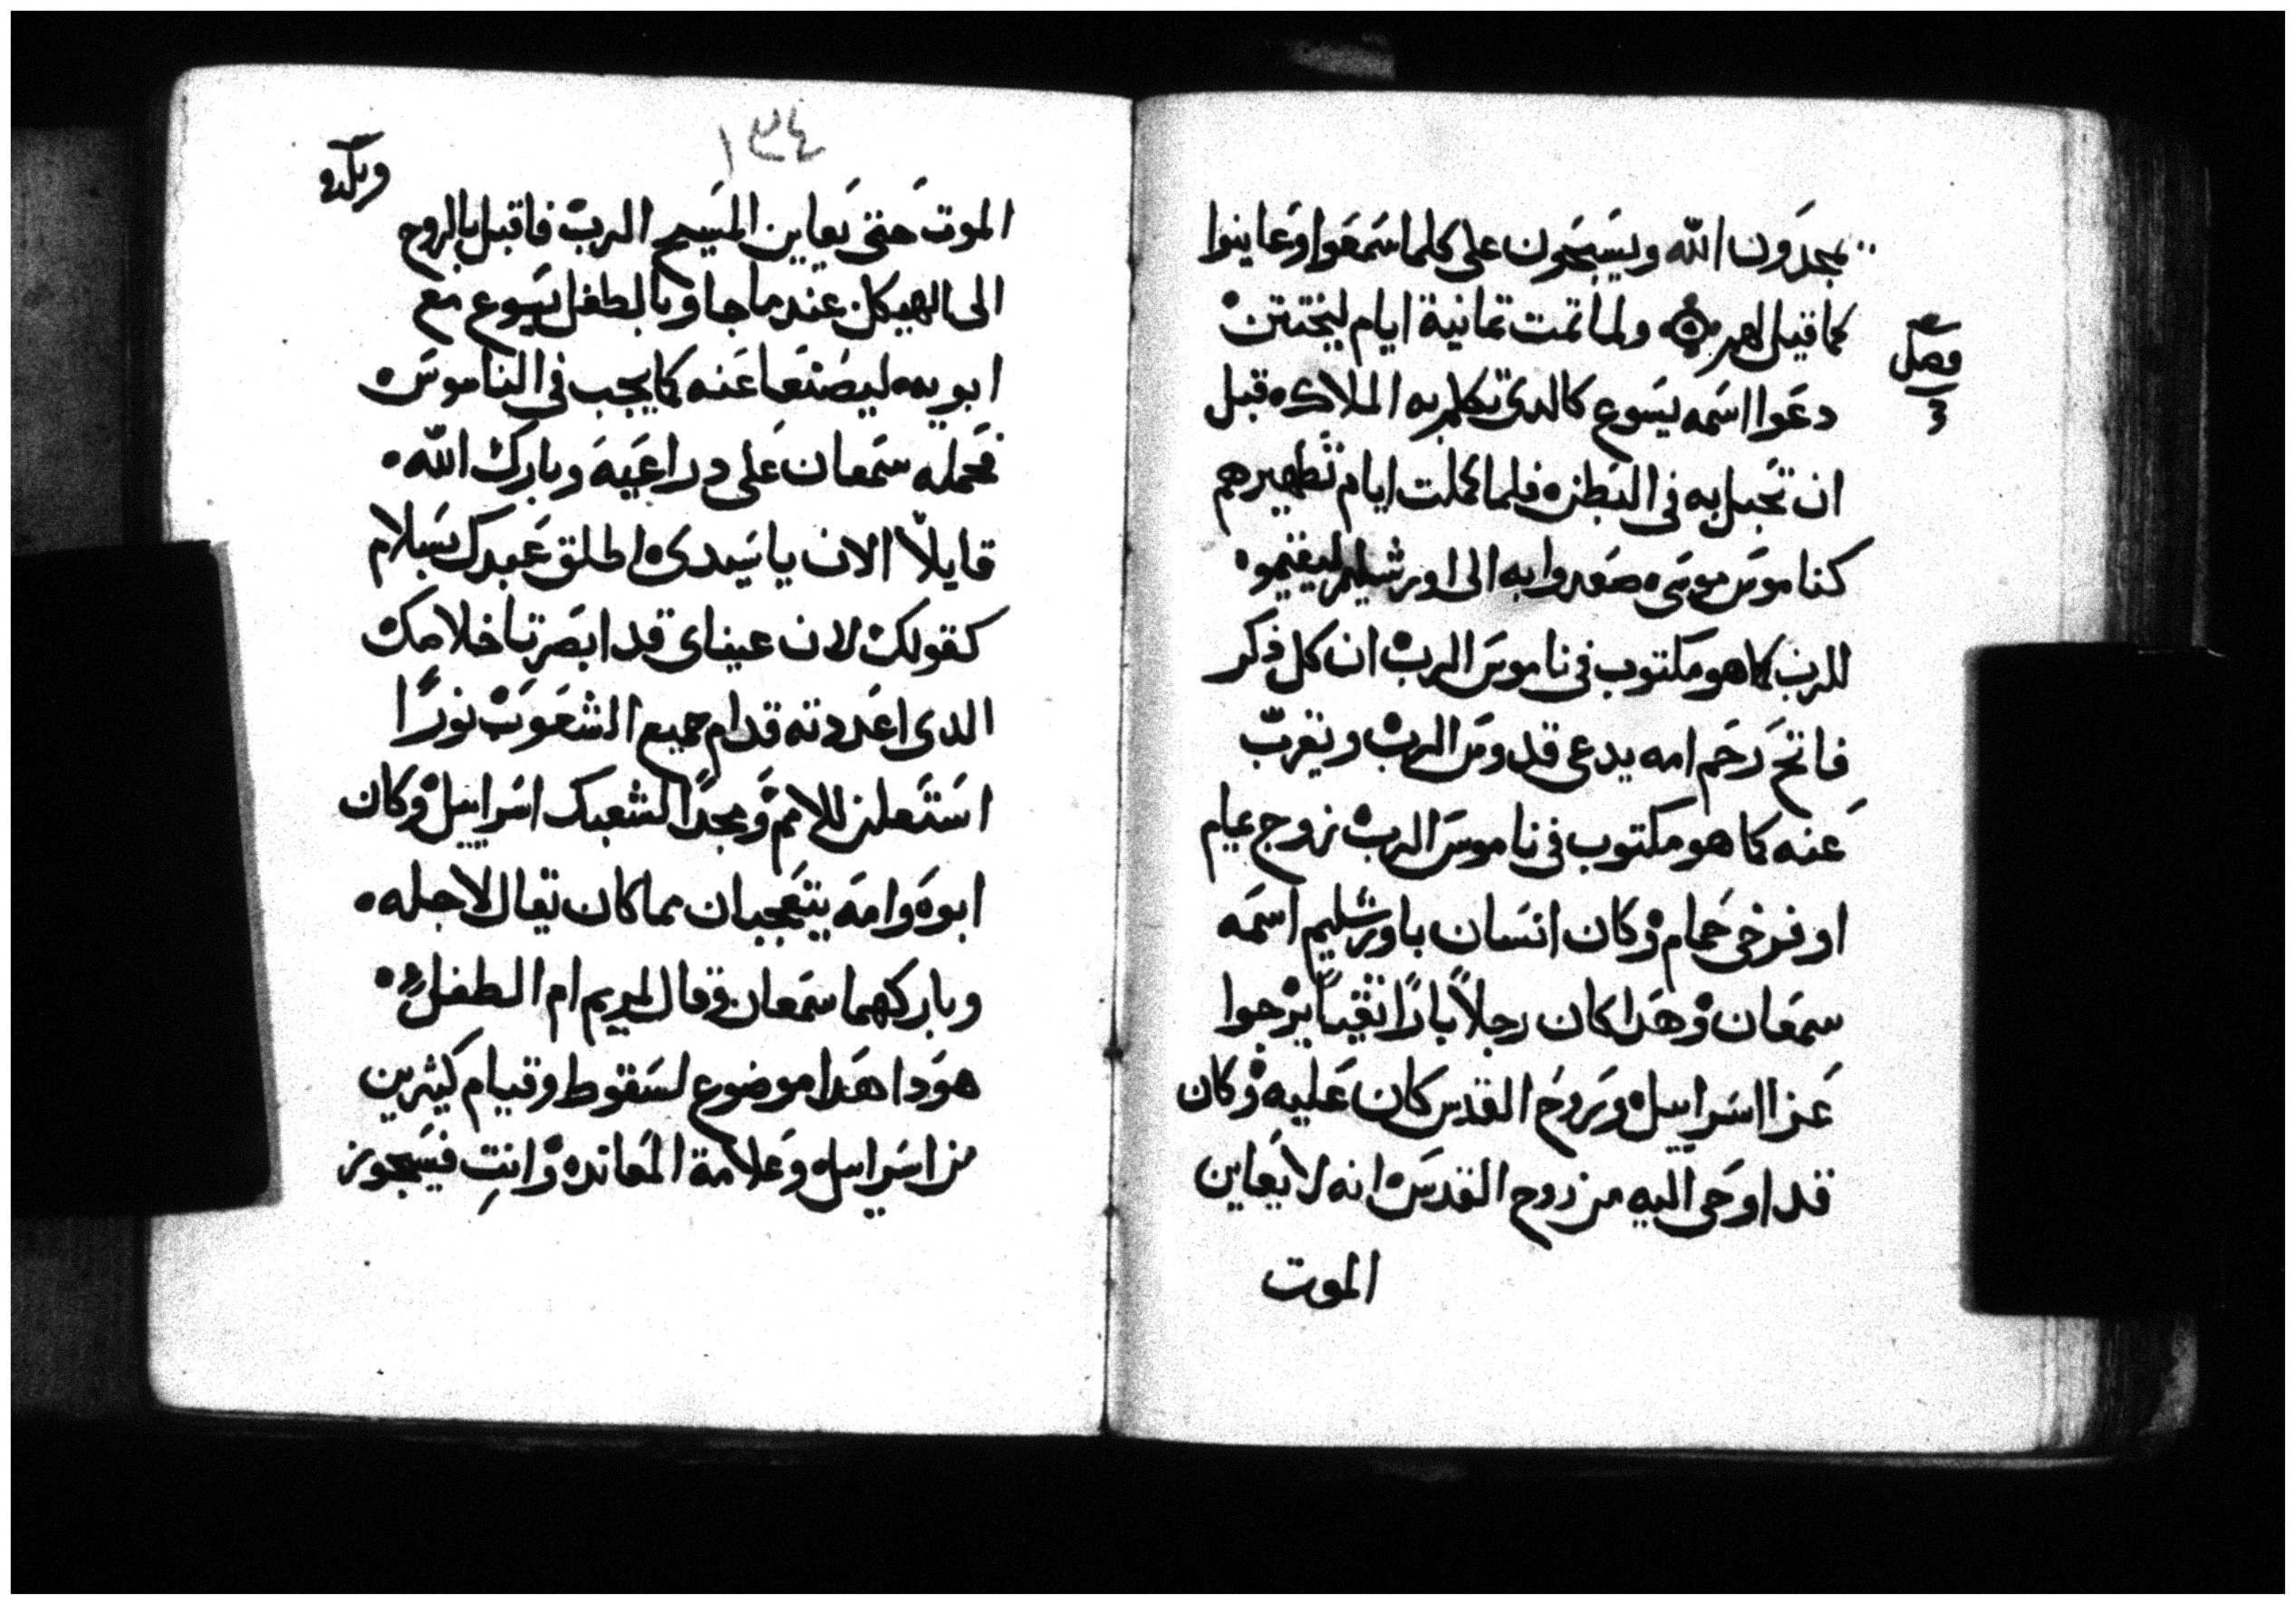 يمجدون الله ويسبحون على كلما سمعوا وعاينوا
كما قيل لهم ولما تمت تمانية ايام ليختتن
فصل
دعوا اسمه يسوع كالدى تكلم به الملاك قبل
ان تحبل به في البطن فلما كملت ايام تطهيرهم
كناموس موسى صعدوا به الى اورشليم ليقيموه
للرب كما هو مكتوب في ناموس الرب ان كل ذكر
فاتح رحم امه يدعى قدوس الرب ويقرب
عنه كما هو مكتوب في ناموس الرب زوج يمام
او فرخى حمام وكان انسان باورشليم اسمه
سمعان وهدا كان رجلاً باراً تقياً يرجوا
عزا اسراييل وروح القدس كان عليه وكان
قد اوحى اليه من روح القدس انه لا يعاين
الموت
١٣٤
الموت حتى يعاين المسيح الرب فاقبل بالروح
الى الهيكل عندما جاوا بالطفل يسوع مع
ابويه ليصنعا عنه كما يجب في الناموس
فحمله سمعان على دراعيه وبارك الله
قايلاً الان يا سيدى اطلق عبدك بسلام
كقولك لان عيناى قد ابصرتا خلاصك
الدى اعددته قدام جميع الشعوب نوراً
استعلن للامم ومجداً لشعبك اسراييل وكان
ابوه وامه يتعجبان مما كان يقال لاجله
وباركهما سمعان وقال لمريم ام الطفل
هودا هدا موضوع لسقوط وقيام كثيرين
من اسراييل وعلامة المعانده وانتِ فسيجوز